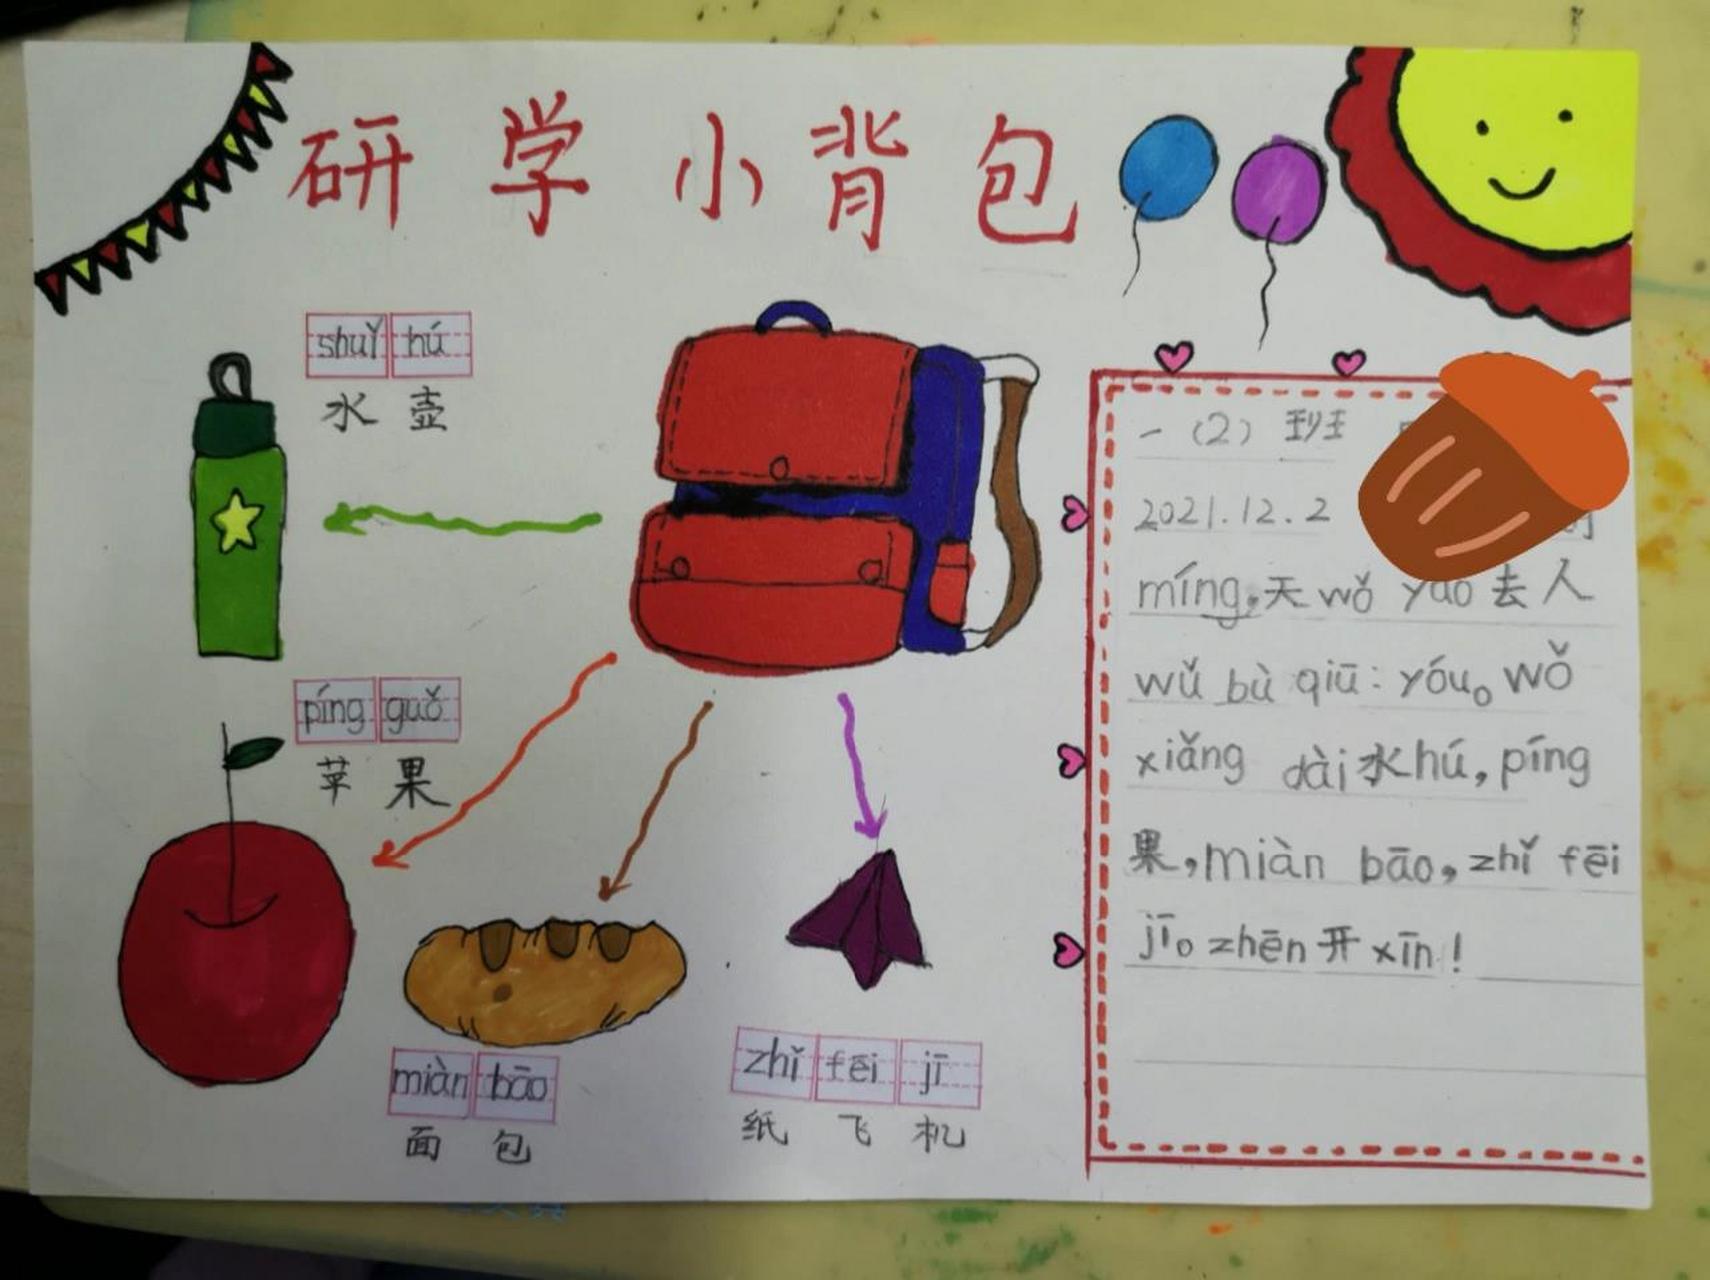 研学小背包
shuǐ hú
水壶
píng guǒ
苹果
miàn bāo
面包
zhǐ fēi jī
纸飞机
一（2）班
2021.12.2
míng,天wǒ yào去人
wǔ bù qiū:yóu。wǒ
xiǎng dài水hú,píng
果,miàn bāo,zhǐ fēi
jī。zhēn开xīn!